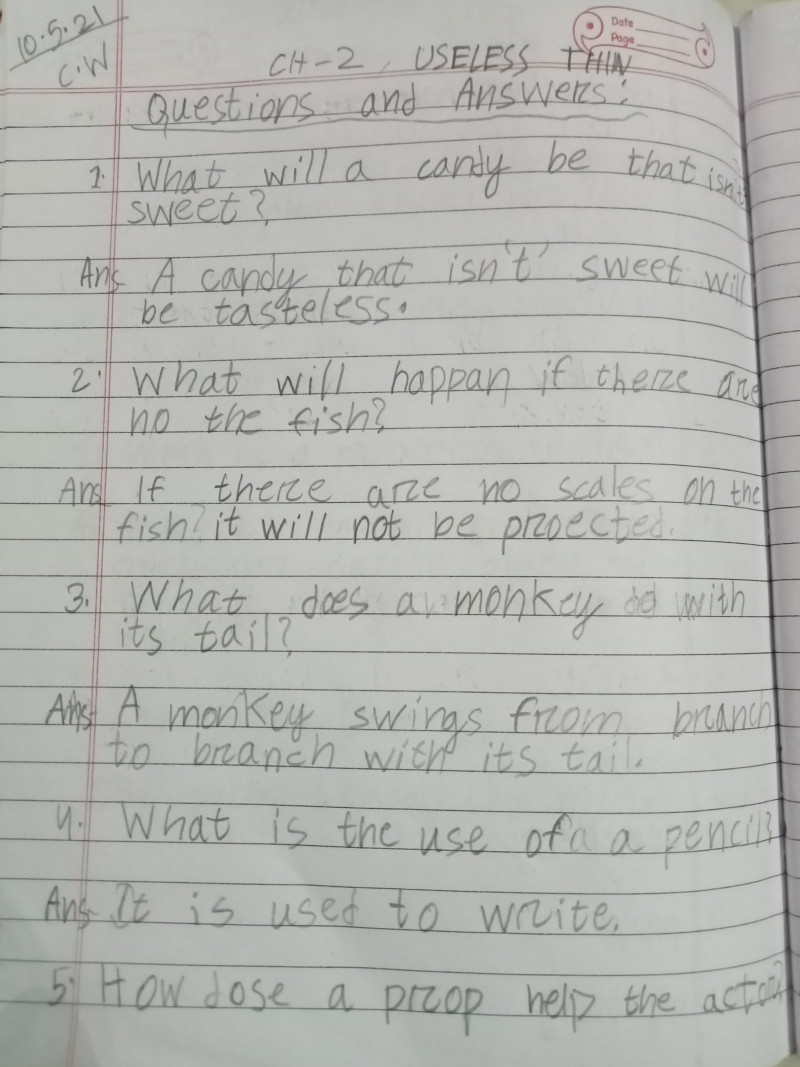 10.5.21
C.W
Date
Page
CH-2, USELESS THIN
Questions and Answers:
1. What will a candy be that isn't
sweet?
Ans A candy that isn't' sweet will
be tasteless.
2. What will happan if there are
no the fish?
Ans If there are no scales on the
fish? it will not be proected.
3. What does a monkey do with
its tail?
Ans A monkey swings from branch
to branch with its tail.
4. What is the use of a a pencil?
Ans It is used to write.
5. How dose a prop help the actor?